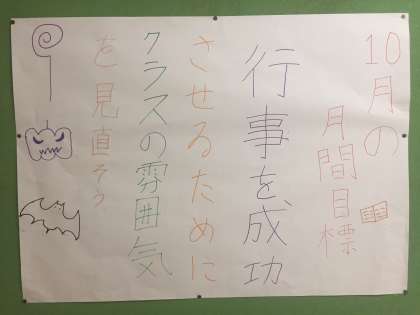 10月の
月間目標
行事を成功
させるために
クラスの雰囲気
を見直そう